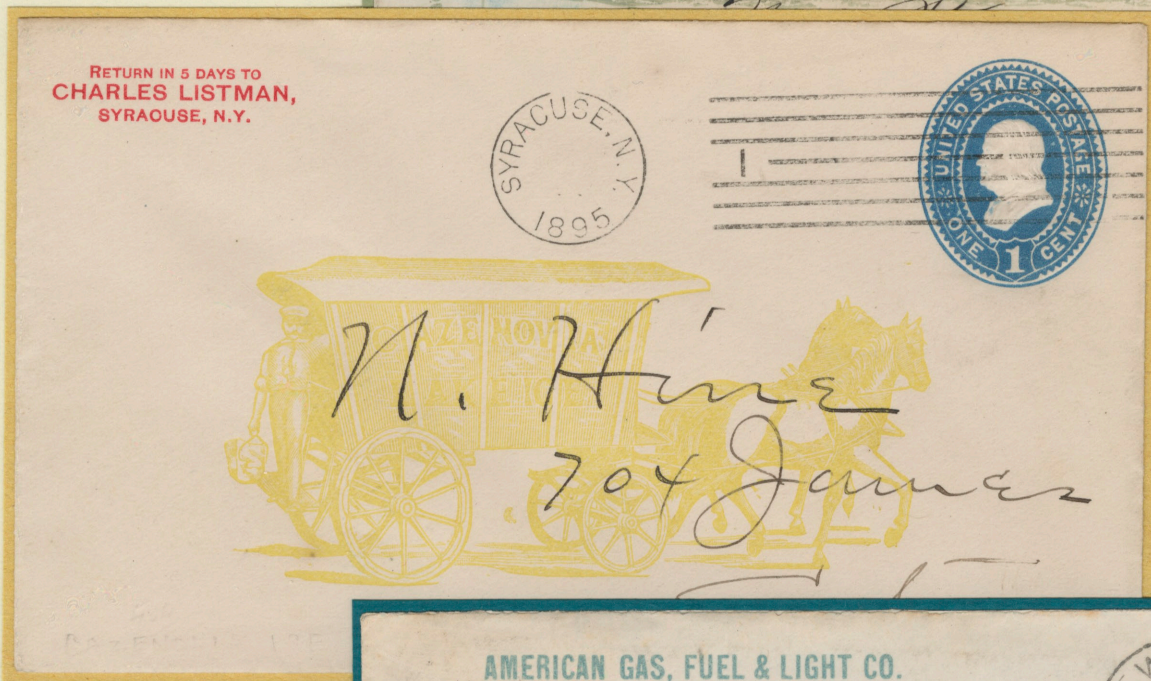 RETURN IN 5 DAYS TO
CHARLES LISTMAN,
SYRACUSE, N.Y.
SYRACUSE, N.Y.
1895
1
UNITED STATES POSTAGE
ONE 1 CENT
CAZENOVIA
LAKE ICE
N. Hine
704 James
AMERICAN GAS, FUEL & LIGHT CO.